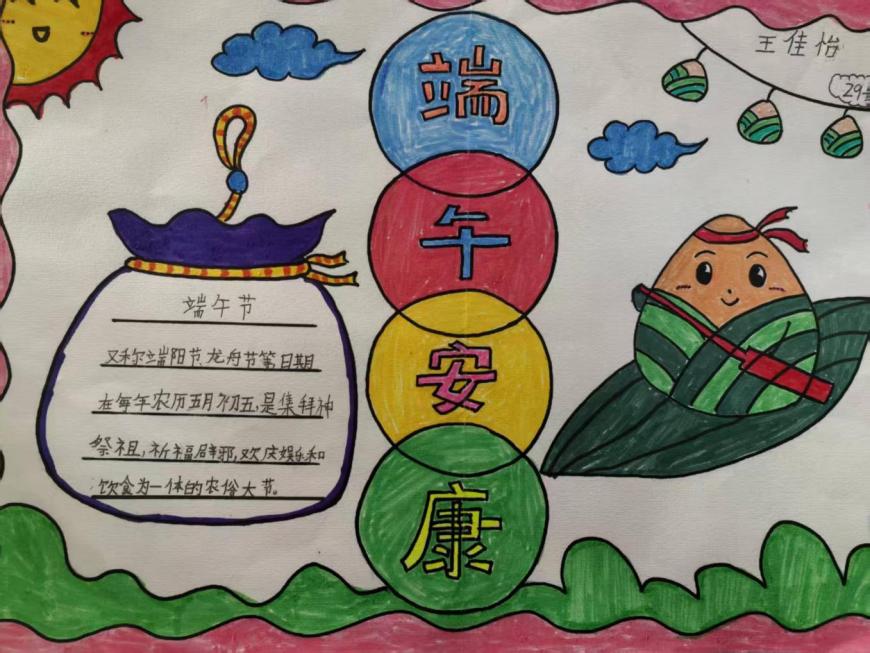 王佳怡
端
午
安
康
端午节
又称端阳节、龙舟节第日期
在每年农历五月初五,是集拜神
祭祖,祈福辟邪,欢庆娱乐和
饮食为一体的农俗大节。